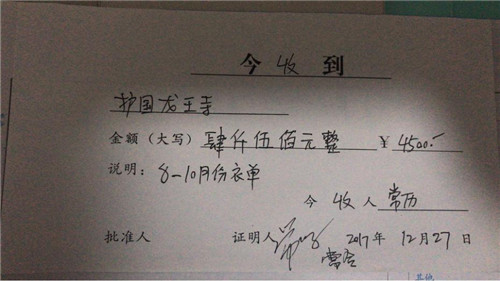 今收到
护国龙王寺
金额（大写）肆仟伍佰元整 ￥4500.-
说明：8-10月份衣单
今收人常历
批准人 证明人 2017年12月27日